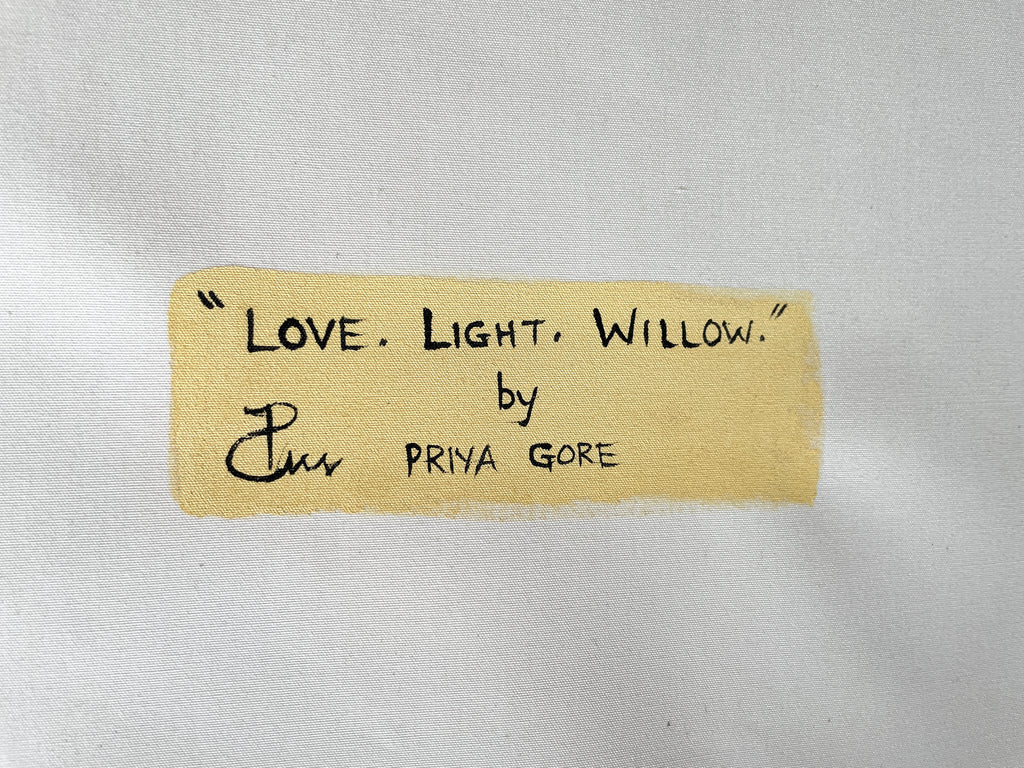 "LOVE. LIGHT. WILLOW."
by
PRIYA GORE